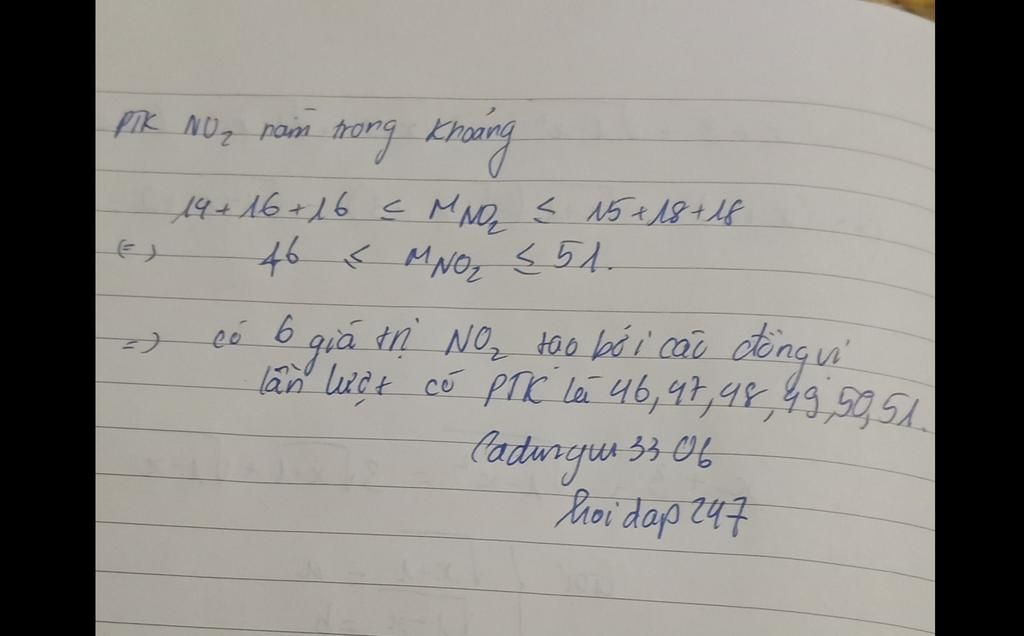 PTK NO2 nằm trong khoảng
14+16+16 ≤ MNO2 ≤ 15+18+18
(=) 46 ≤ MNO2 ≤ 51.
=) có 6 giá trị NO2 tạo bởi các đồng vị
lần lượt có PTK là 46, 47, 48, 49, 50, 51.
3306
hoidap247